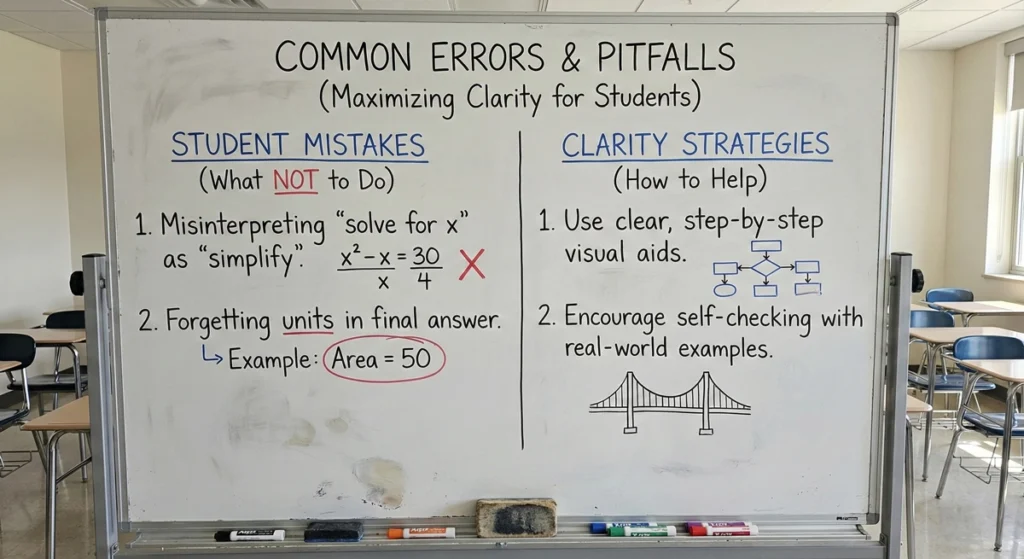 COMMON ERRORS & PITFALLS
(Maximizing Clarity for Students)
STUDENT MISTAKES
(What NOT to Do)
1. Misinterpreting “solve for x”
as “simplify”.
x² − x / x = 30 / 4 X
2. Forgetting units in final answer.
↳ Example: Area = 50
CLARITY STRATEGIES
(How to Help)
1. Use clear, step-by-step
visual aids.
2. Encourage self-checking with
real-world examples.